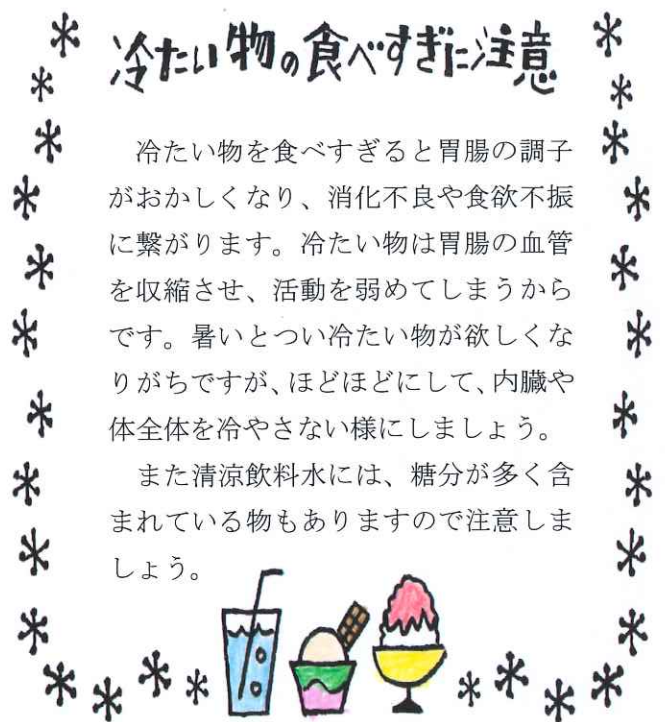 冷たい物の食べすぎに注意
冷たい物を食べすぎると胃腸の調子
がおかしくなり、消化不良や食欲不振
に繋がります。冷たい物は胃腸の血管
を収縮させ、活動を弱めてしまうから
です。暑いとつい冷たい物が欲しくな
りがちですが、ほどほどにして、内臓や
体全体を冷やさない様にしましょう。
また清涼飲料水には、糖分が多く含
まれている物もありますので注意しま
しょう。